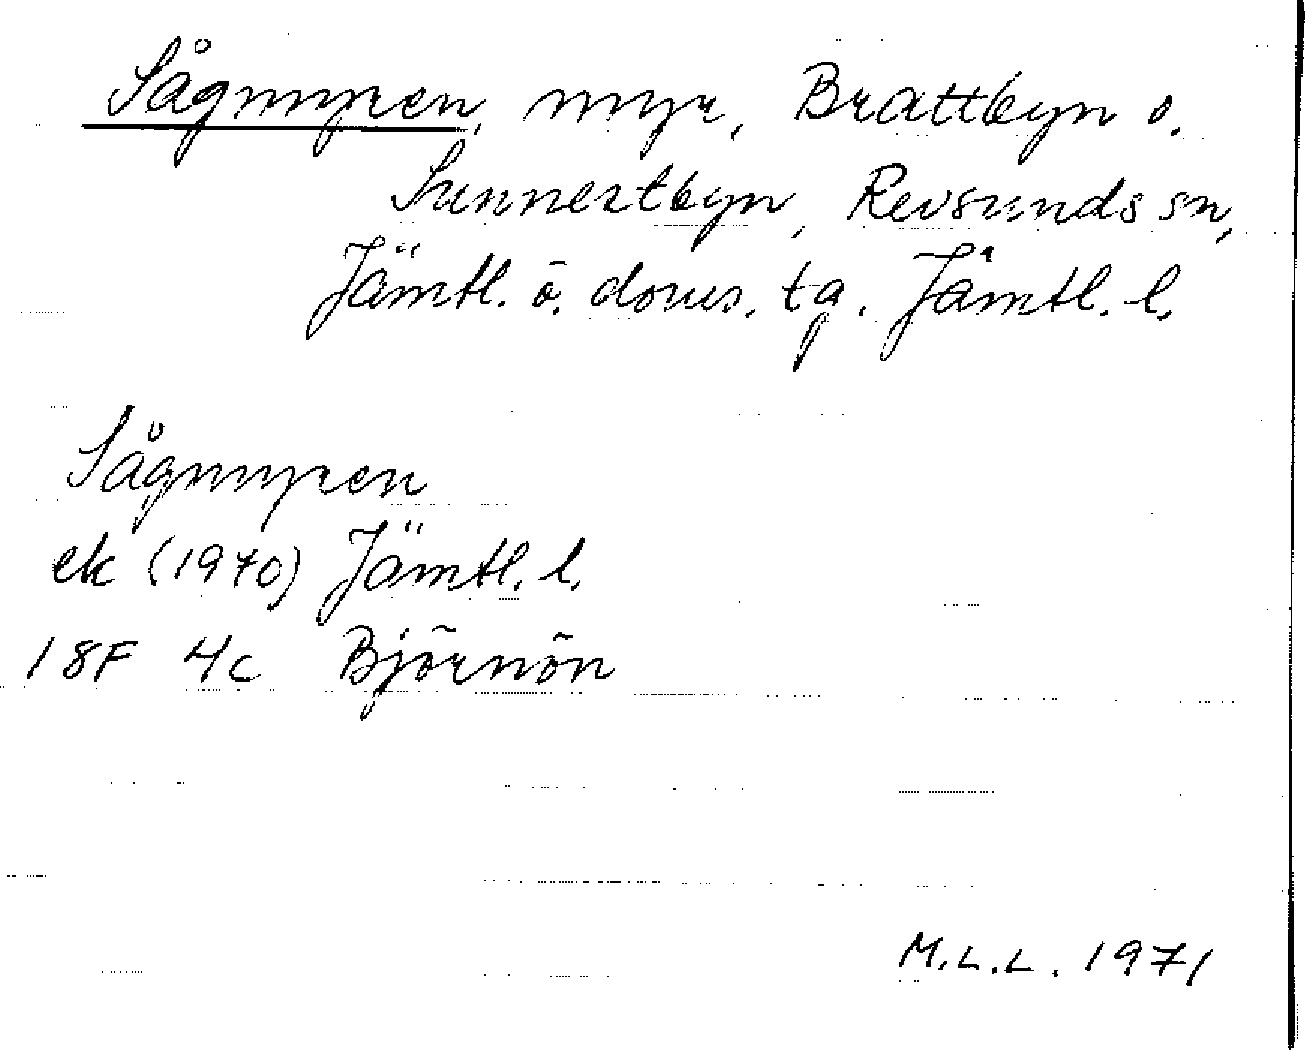 Sågmyren, myr, Brattbyn o.
Sunnerstbyn, Revsunds sn,
Jämtl. ö. doms. tg. Jämtl. l.
Sågmyren
ek (1970) Jämtl. l.
18F 4c Björnön
M.L.L. 1971